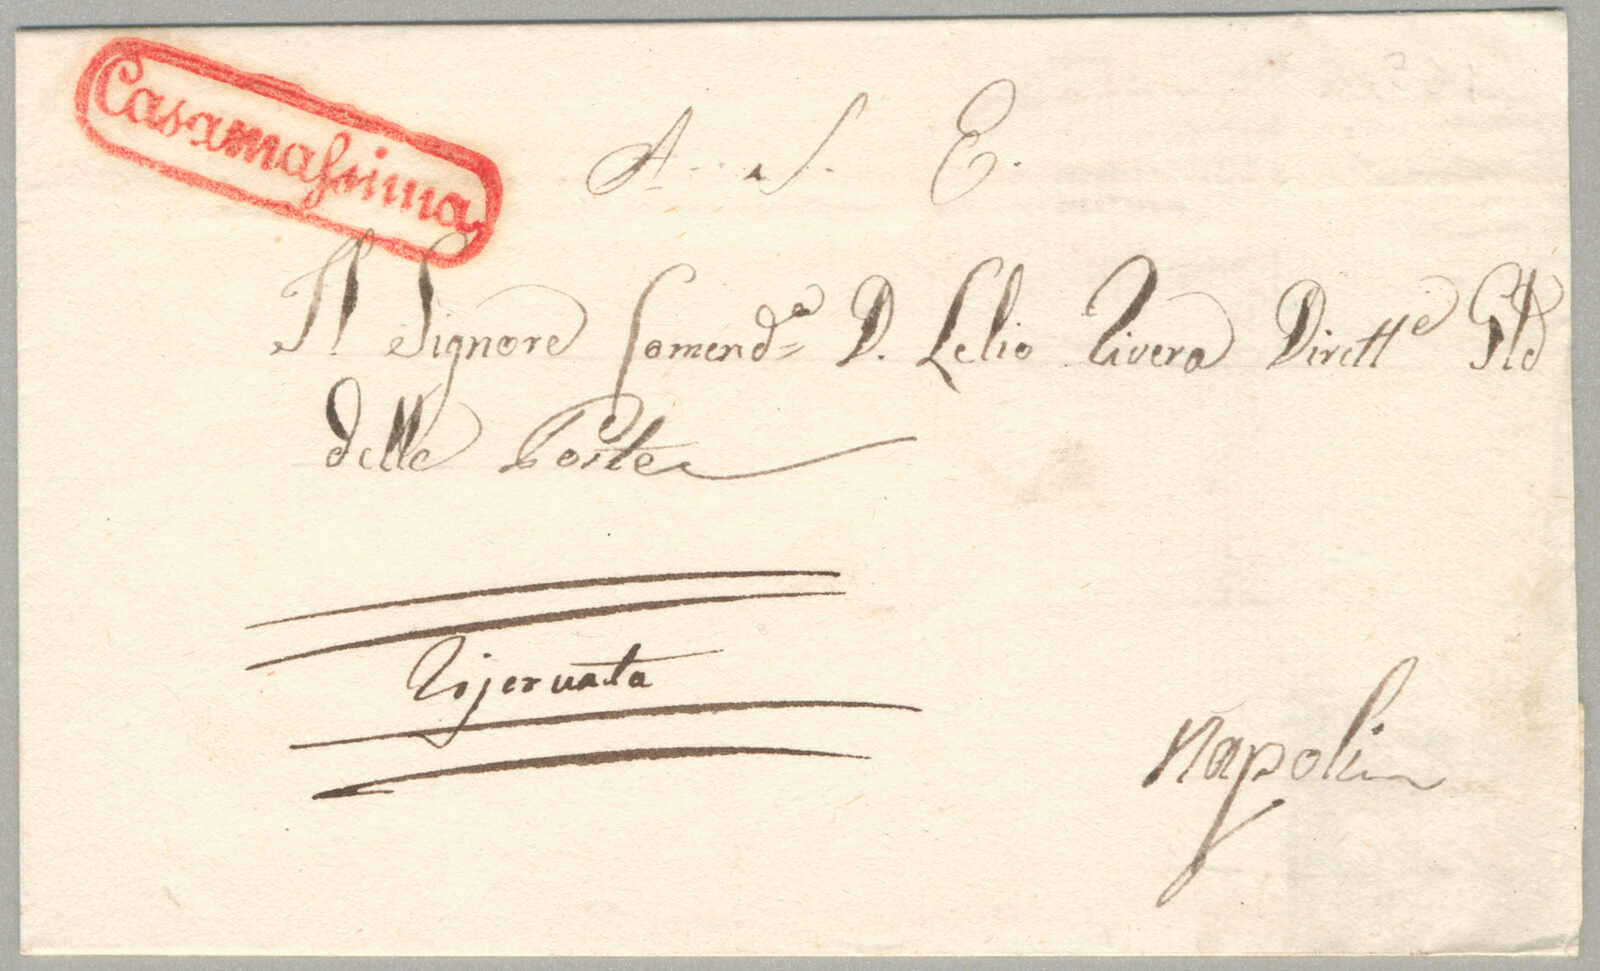 Casamassima
A. S. E.
Il Signore Comend.e D. Lelio Rivera Dirett.e Gle
delle Poste
Riservata
Napoli